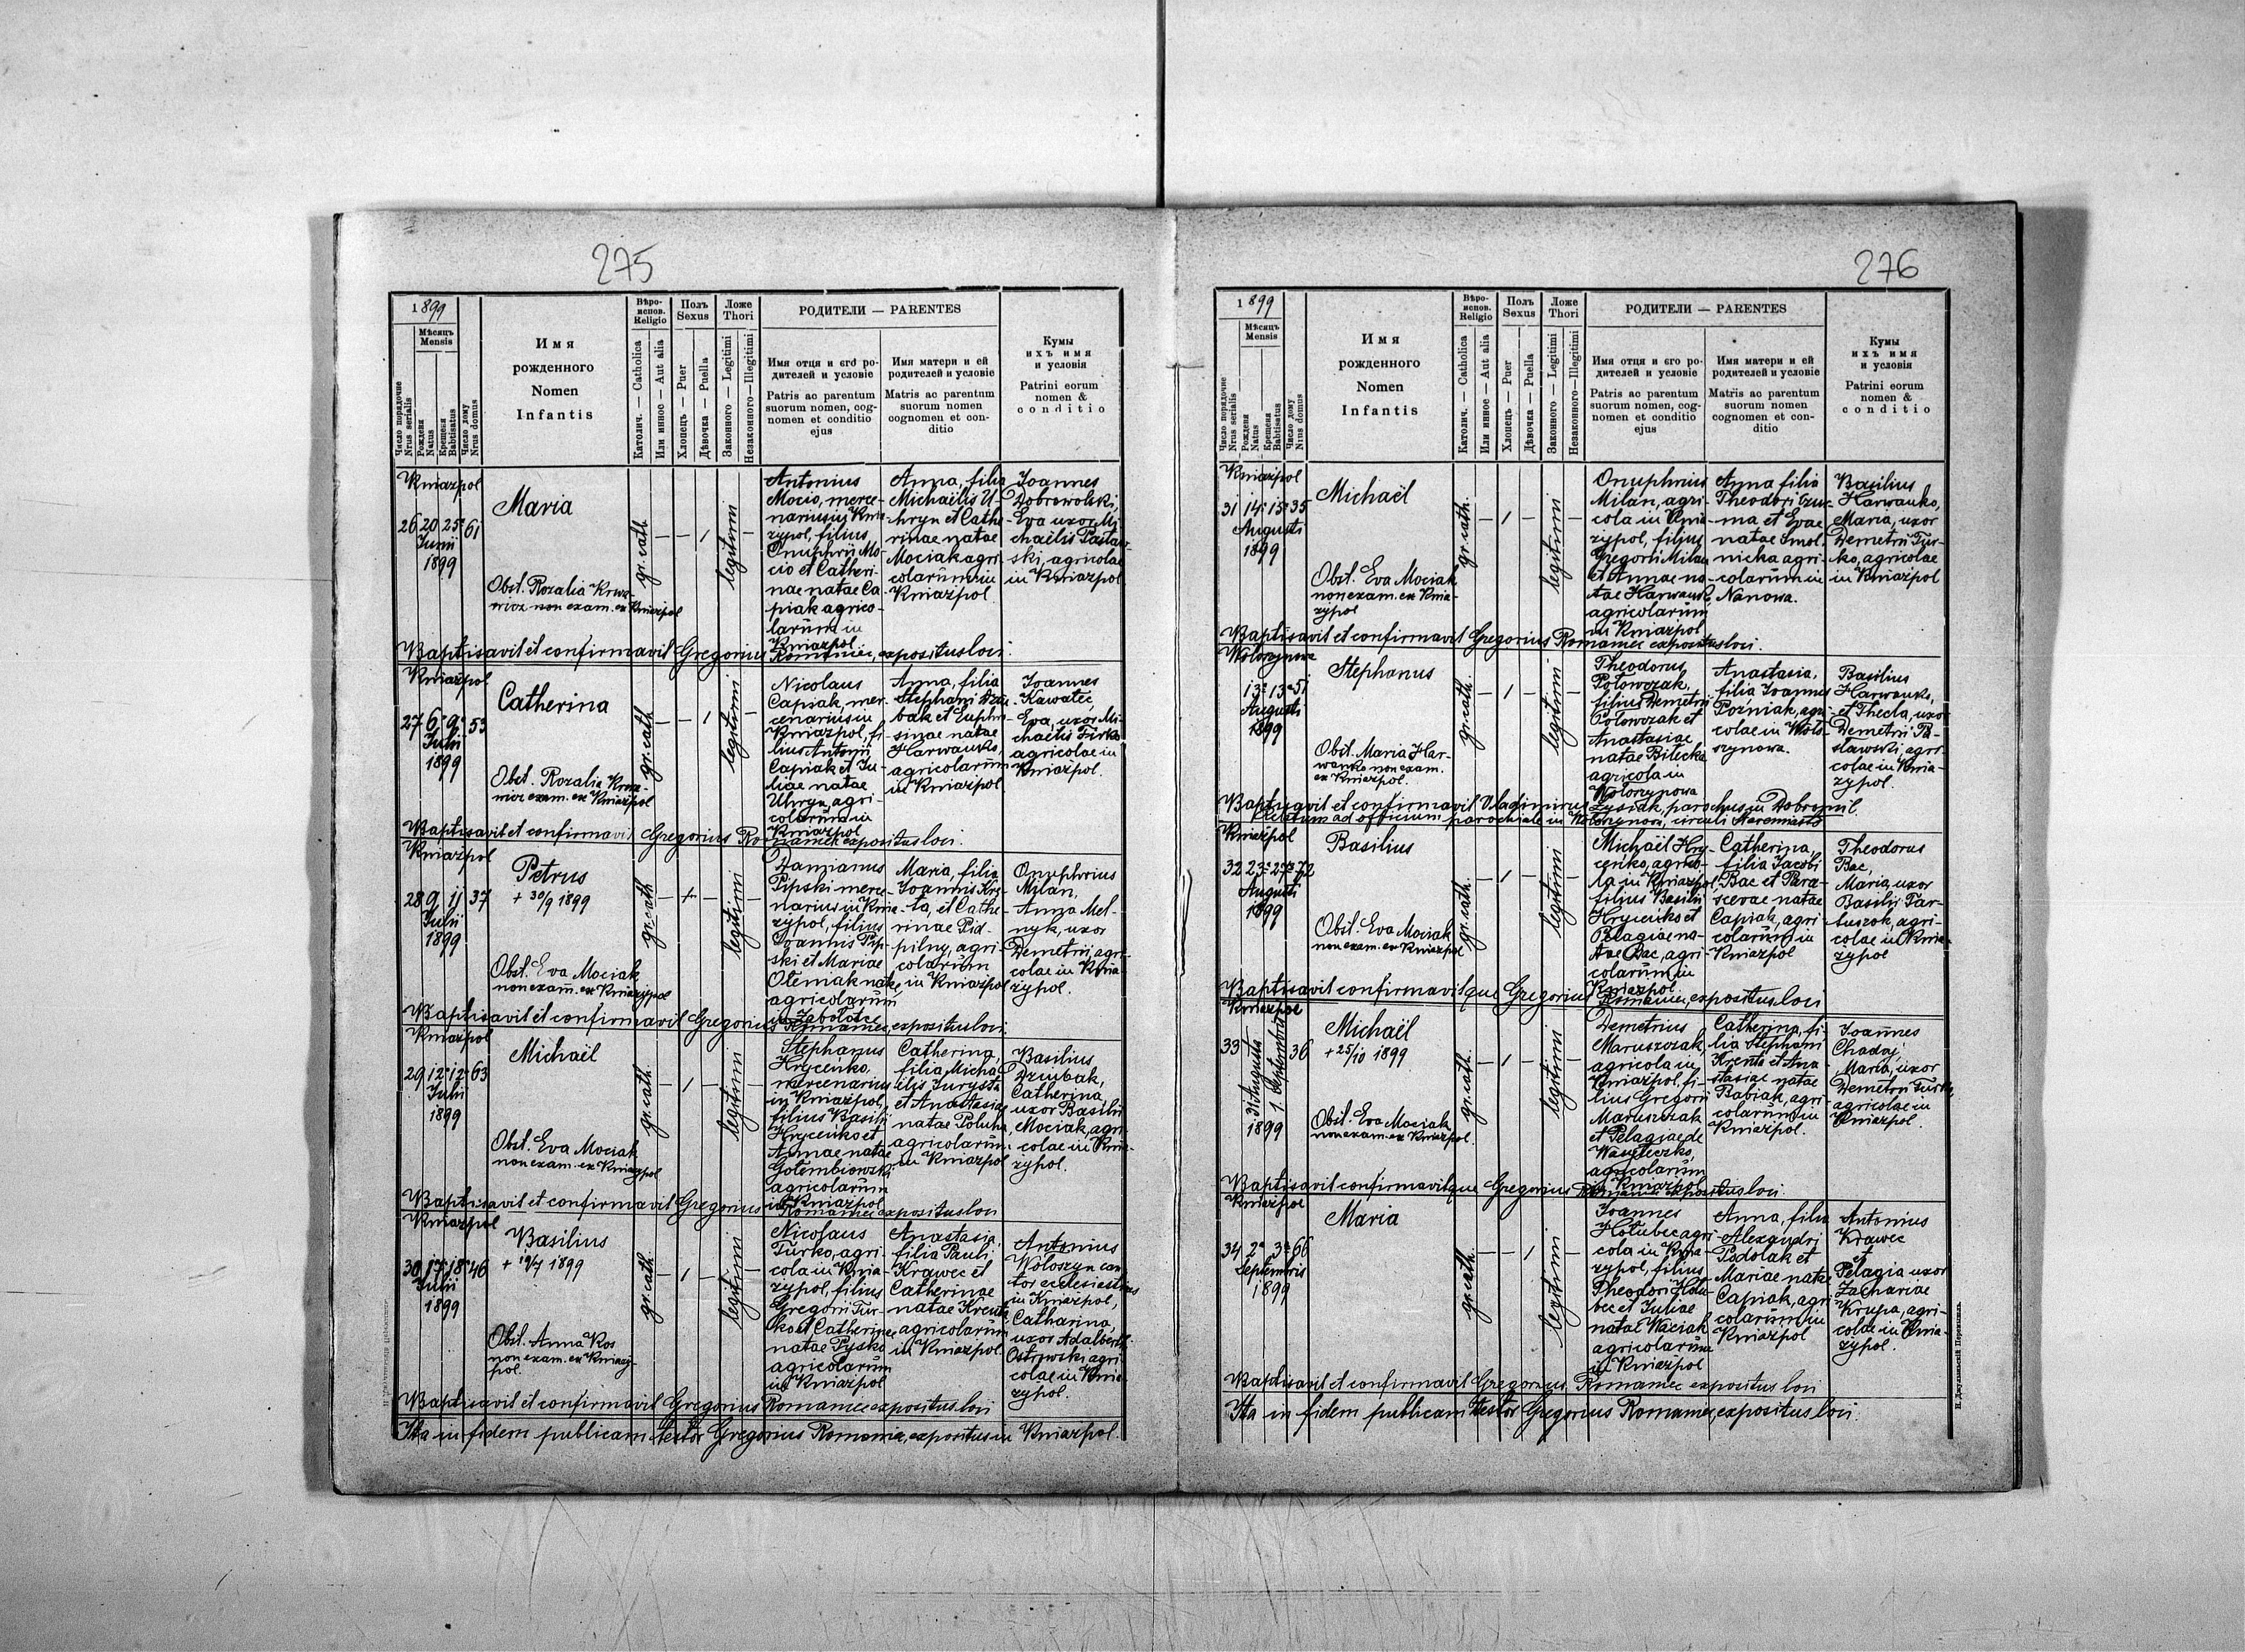 275
1899
Мѣсяцъ
Mensis
Число порядочне
Nrus serialis
Рожденя
Natus
Крещенія
Babtisatus
Число дому
Nrus domus
Имя
рожденного
Nomen
Infantis
Вѣро-
испов.
Religio
Католич. — Catholica
Или инное — Aut alia
Полъ
Sexus
Хлопецъ — Puer
Дѣвочка — Puella
Ложе
Thori
Законного — Legitimi
Незаконного — Illegitimi
РОДИТЕЛИ — PARENTES
Имя отця и єго ро-
дителей и условіе
Patris ac parentum
suorum nomen, cog-
nomen et conditio
ejus
Имя матери и ей
родителей и условіе
Matris ac parentum
suorum nomen
cognomen et con-
ditio
Кумы
ихъ имя
и условія
Patrini eorum
nomen &
conditio
Kniażpol
26 20 25 61
Junii
1899
Maria
Obst. Rozalia
non exam. ex Kniażpol
gr. cath.
— — 1 legitimi —
Antonius
Mocio, merce-
narius in Knia-
zypol, filius
Onuphrii Mo-
cio et Catheri-
nae natae Ca-
piak agrico-
larum in
Kniażpol
Anna, filia
Michaëlis U-
hryn et Cathe-
rinae natae
Mociak agri-
colarum in
Kniażpol
Joannes
Dobrowolski,
Eva uxor Mi-
chaëlis
ski, agricolae
in Kniażpol
Baptisavit et confirmavit Gregorius Romaniec, expositus loci.
Kniażpol
27 6 9 53
Julii
1899
Catherina
Obst. Rozalia
exam. ex Kniażpol
gr. cath.
— — 1 legitimi —
Nicolaus
Capiak, mer-
cenarius in
Kniażpol, fi-
lius Antonii
Capiak et Ju-
liae natae
Uhryn, agri-
colarum in
Kniażpol
Anna, filia
Stephani Dziu-
bak et Euphro-
sinae natae
Harwanko,
agricolarum
in Kniażpol
Joannes
Kawałec,
Eva, uxor Mi-
chaëlis Turko
agricolae in
Kniażpol.
Baptisavit et confirmavit Gregorius Romaniec expositus loci.
Kniażpol
28 9 11 37
Julii
1899
Petrus
+ 30/9 1899
Obst. Eva Mociak
non exam. ex Kniazypol
gr. cath.
— 1 — legitimi —
Damianus
Pipski merce-
narius in Knia-
zypol, filius
Joannis Pip-
ski et Mariae
Oleniak natae,
agricolarum
in Zabołotce
Maria, filia
Joannis Kre-
ta, et Cathe-
rinae Pid-
pilny, agri-
colarum
in Kniażpol
Onuphrius
Milan,
Anna Mel-
nyk, uxor
Demetrii, agri-
colae in Knia-
zypol.
Baptisavit et confirmavit Gregorius Romaniec, expositus loci.
Kniażpol
29 12 12 63
Julii
1899
Michaël
Obst. Eva Mociak
non exam. ex Kniazypol
gr. cath.
— 1 — legitimi —
Stephanus
Hrycenko,
mercenarius
in Kniażpol,
filius Basilii
Hrycenko et
Annae natae
Gołembiowski
agricolarum
in Kniażpol
Catherina,
filia Micha-
ëlis Jurysta
et Anastasiae
natae Poluha,
agricolarum
in Kniażpol
Basilius
Dziubak,
Catherina,
uxor Basilii
Mociak, agri-
colae in Knia-
zypol.
Baptisavit et confirmavit Gregorius Romaniec expositus loci
Kniażpol
30 17 18 46
Julii
1899
Basilius
+ 19/7 1899
Obst. Anna Kos
non exam. ex Kniazy-
pol.
gr. cath.
— 1 — legitimi —
Nicolaus
Turko, agri-
cola in Knia-
zypol, filius
Gregorii Tur-
ko et Catherinae
natae Pysko
agricolarum
in Kniażpol
Anastasia,
filia Pauli
Krawec et
Catherinae
natae Krenta
agricolarum
in Kniażpol.
Antonius
Wołoszyn can-
tor ecclesiasticus
in Kniażpol,
Catharina,
uxor Adalberti
Ostrowski agri-
colae in Knia-
zypol.
Baptisavit et confirmavit Gregorius Romaniec expositus loci
Ita in fidem publicam testor Gregorius Romaniec, expositus in Kniażpol.
276
1899
Мѣсяцъ
Mensis
Число порядочне
Nrus serialis
Рожденя
Natus
Крещенія
Babtisatus
Число дому
Nrus domus
Имя
рожденного
Nomen
Infantis
Вѣро-
испов.
Religio
Католич. — Catholica
Или инное — Aut alia
Полъ
Sexus
Хлопецъ — Puer
Дѣвочка — Puella
Ложе
Thori
Законного — Legitimi
Незаконного — Illegitimi
РОДИТЕЛИ — PARENTES
Имя отця и єго ро-
дителей и условіе
Patris ac parentum
suorum nomen, cog-
nomen et conditio
ejus
Имя матери и ей
родителей и условіе
Matris ac parentum
suorum nomen
cognomen et con-
ditio
Кумы
ихъ имя
и условія
Patrini eorum
nomen &
conditio
Kniażpol
31 14 15 35
Augusti
1899
Michaël
Obst. Eva Mociak
non exam. ex Knia-
zypol
gr. cath.
— 1 — legitimi —
Onuphrius
Milan, agri-
cola in Knia-
zypol, filius
Gregorii Milan
et Annae na-
tae Harwanko,
agricolarum
in Kniażpol
Anna filia
Theodori
ma et Evae
natae Smol-
nicka agri-
colarum in
Nanowa.
Basilius
Harwanko,
Maria, uxor
Demetrii Tur-
ko, agricolae
in Kniażpol
Baptisavit et confirmavit Gregorius Romaniec expositus loci.
Wołoszynowa
13 13 51
Augusti
1899
Stephanus
Obst. Maria Har-
wanko non exam.
ex Kniażpol.
gr. cath.
— 1 — legitimi —
Theodorus
Połowczak,
filius Demetrii
Połowczak et
Anastasiae
natae Bilecka
agricola in
Wołoszynowa
Anastasia,
filia Joannis
Poźniak, agri-
colae in Woło-
szynowa.
Basilius
Harwanko,
et Thecla, uxor
Demetrii Pa-
sławski, agri-
colae in Knia-
zypol.
Baptisavit et confirmavit Vladimirus Łysiak, parochus in Dobromil.
ad officium parochiale in Wołoszynowa, circuli Staremiasto
Kniażpol
32 23 27 72
Augusti
1899
Basilius
Obst. Eva Mociak
non exam. ex Kniażpol
gr. cath.
— 1 — legitimi —
Michaël Hry-
cenko, agrico-
la in Kniażpol
filius Basilii
Hrycenko et
Pelagiae na-
tae Bac, agri-
colarum in
Kniażpol
Catherina,
filia Jacobi
Bac et Para-
scevae natae
Capiak, agri-
colarum in
Kniażpol
Theodorus
Bac,
Maria, uxor
Basilii Par-
tuszok, agri-
colae in Knia-
zypol
Baptisavit confirmavitque Gregorius Romaniec, expositus loci
Kniażpol
33 31 Augusti 1. Septembris 36
1899
Michaël
+ 25/10 1899
Obst. Eva Mociak
non exam. ex Kniażpol.
gr. cath.
— 1 — legitimi —
Demetrius
Maruszczak,
agricola in
Kniażpol, fi-
lius Gregorii
Maruszczak
et Pelagiae de
Wasyleczko,
agricolarum
in Kniażpol
Catherina, fi-
lia Stephani
Krenta et Ana-
stasiae natae
Babiak, agri-
colarum in
Kniażpol.
Joannes
Chadaj,
Maria, uxor
Demetrii Turko,
agricolae in
Kniażpol.
Baptisavit confirmavitque Gregorius Romaniec expositus loci.
Kniażpol
34 2 3 66
Septembris
1899
Maria
gr. cath.
— — 1 legitimi —
Joannes
Hołubec agri-
cola in Knia-
zypol, filius
Theodori Hołu-
bec et Juliae
natae Waciak
agricolarum
in Kniażpol
Anna, filia
Alexandri
Podolak et
Mariae natae
Capiak, agri-
colarum in
Kniażpol
Antonius
Krawec
et
Pelagia uxor
Zachariae
Krupa, agri-
colae in Knia-
zypol.
Baptisavit et confirmavit Gregorius Romaniec expositus loci
Ita in fidem publicam testor Gregorius Romaniec, expositus loci.